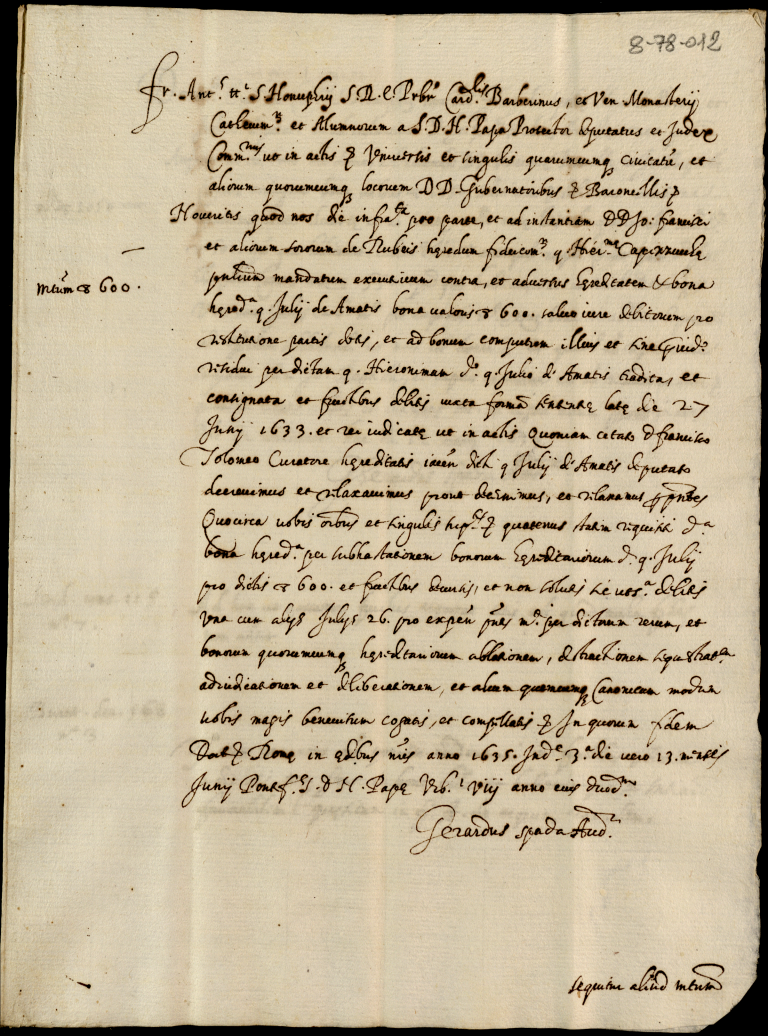 8-78-012
Fr. Ant.s tt.i S. Honuphrij S.R.E. Prbr Card.lis Barberinus, et Ven. Monasterij
Cathecum.m et Alumnorum a S.D.N. Papa Protector deputatus et Judex
Comm.rius ut in actis & Universis et singulis quarumcumq civitatū, et
aliorum quorumcumq locorum DD. Gubernatoribus & Baroncellis &
Noveritis quod nos die infra.ta pro parte, et ad instantiam DD. Jo: francisci
et aliorum sororum de Rubeis hęredum fideicom. q. Hier.mę Capizzucchę
mtūm 8 600.
mandatum executivum contra, et adversus hęreditatem & bona
hęred.a q. Julij de Amatis bona valoris 8 600. salvo iure debitorum pro
restitutione partis dotis, et ad bonum computum illius et sine Preiud.o
residui per dictam q. Hieronimam d.o q. Julio de Amatis tradita, et
consignata et fructibus debitis iuxta formā sententię latę die 27
Junij 1633. et rei iudicatę ut in actis Quoniam citato D. francisco
Tolomeo Curatore hęreditatis iacen. dicti q. Julij de Amatis deputato
decrevimus et relaxavimus prout decernimus, et relaxamus pp pntes
Quocirca vobis oibus et singulis & quatenus statim requisiti d.a
bona hęred.a per subhastationem bonorum hęreditariorum d. q. Julij
pro dictis 8 600. et fructibus decursis, et non solutis debitis
una cum alijs Julijs 26. pro expen pntis m.ti per dictarum rerum, et
bonorum quorumcumq hęreditariorum ablationem, distractionem sequestrat.m
adiudicationem et deliberationem, et alium quemcumq Canonicum modum
vobis magis benevisum cogatis, et compellatis & In quorum fidem
Dat & Romę in ędibus nris anno 1635. Ind.e 3.a die vero 13. mensis
Junij Pontif. S. D. N. Papę Urb. VIIJ anno eius duod.mo
Gerardus spada Aud.r
sequitur aliud mtum